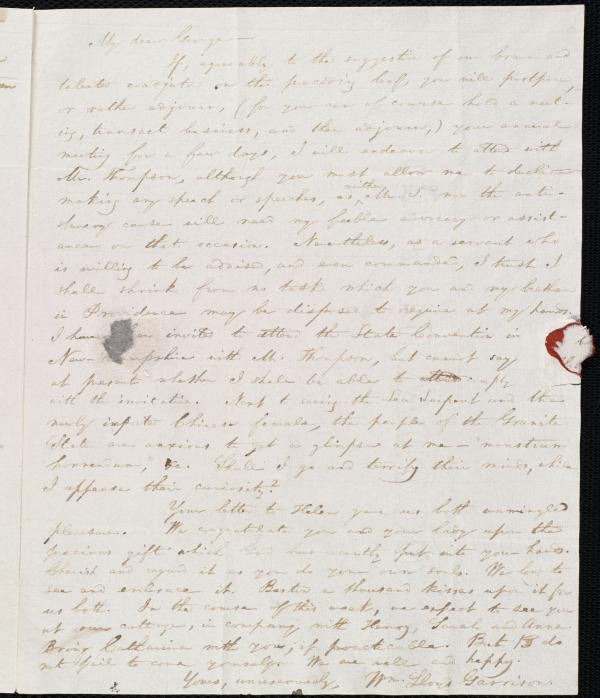 My dear George—
If, agreeably to the suggestion of our brave and
talented coadjutor on the preceding leaf, you will postpone,
or rather adjourn, (for you can of course hold a meet-
ing, transact business, and then adjourn,) your annual
meeting for a few days, I will endeavor to attend with
Mr. Thompson, although you must allow me to decline
making any speech or speeches, as neither Mr. T. nor the anti-
slavery cause will need my feeble advocacy or assist-
ance on that occasion. Nevertheless, as a servant who
is willing to be advised, and even commanded, I trust I
shall shrink from no task which you and my brethren
in Providence may be disposed to require at my hands.
I have been invited to attend the State Convention in
New-Hampshire with Mr. Thompson, but cannot say
at present whether I shall be able to comply
with the invitation. Next to seeing the Sea Serpent and the
newly imported Chinese female, the people of the Granite
State are anxious to get a glimpse at me—"monstrum
horrendum," &c. Shall I go and terrify their minds, while
I appease their curiosity?
Your letter to Helen gave us both unmingled
pleasure. We congratulate you and your lady upon the
precious gift which God has recently put into your hands.
Cherish and regard it as you do your own souls. We long to
see and embrace it. Bestow a thousand kisses upon it for
us both. In the course of this week, we expect to see you
at our cottage, in company with Henry, Sarah and Anna.
Bring Catharine with you, if practicable. But do
not fail to come yourself. We are well and happy.
Yours, unreservedly, Wm. Lloyd Garrison.